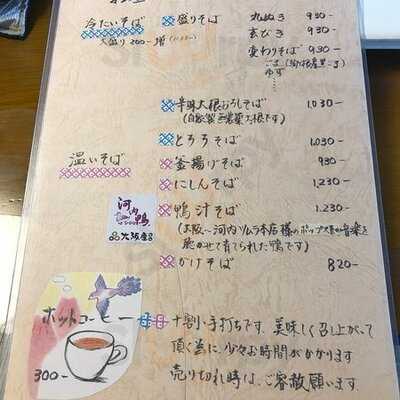 冷たいそば
大盛り 200-増
盛りそば
丸ぬき 930-
玄びき 930-
変わりそば 930-
ゆず……
辛味大根おろしそば 1,030-
とろろそば 1,030-
温いそば
釜揚げそば 930-
にしんそば 1,230-
鴨汁そば 1,230-
(大阪〜河内ツムラ本店様のポップス系の音楽を
聴かせて育てられた鴨です)
かけそば 820-
河内鴨
大阪産
ホットコーヒー
300-
十割・手打ちです。美味しく召し上がって
頂く為に、少々お時間がかかります
売り切れ時は、ご容赦願います。